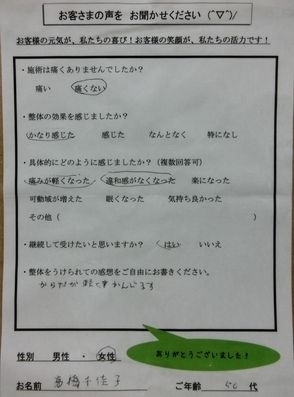 お客さまの声を お聞かせください (^▽^)/
お客様の元気が、私たちの喜び！お客様の笑顔が、私たちの活力です！
・施術は痛くありませんでしたか？
痛い 痛くない
・整体の効果を感じましたか？
かなり感じた 感じた なんとなく 特になし
・具体的にどのように感じましたか？（複数回答可）
痛みが軽くなった 違和感がなくなった 楽になった
可動域が増えた 眠くなった 気持ち良かった
その他（ ）
・継続して受けたいと思いますか？ はい いいえ
・整体をうけられての感想をご自由にお書きください。
からだが軽く
ありがとうございました！
性別 男性 ・ 女性
お名前 高橋 子 ご年齢 50 代